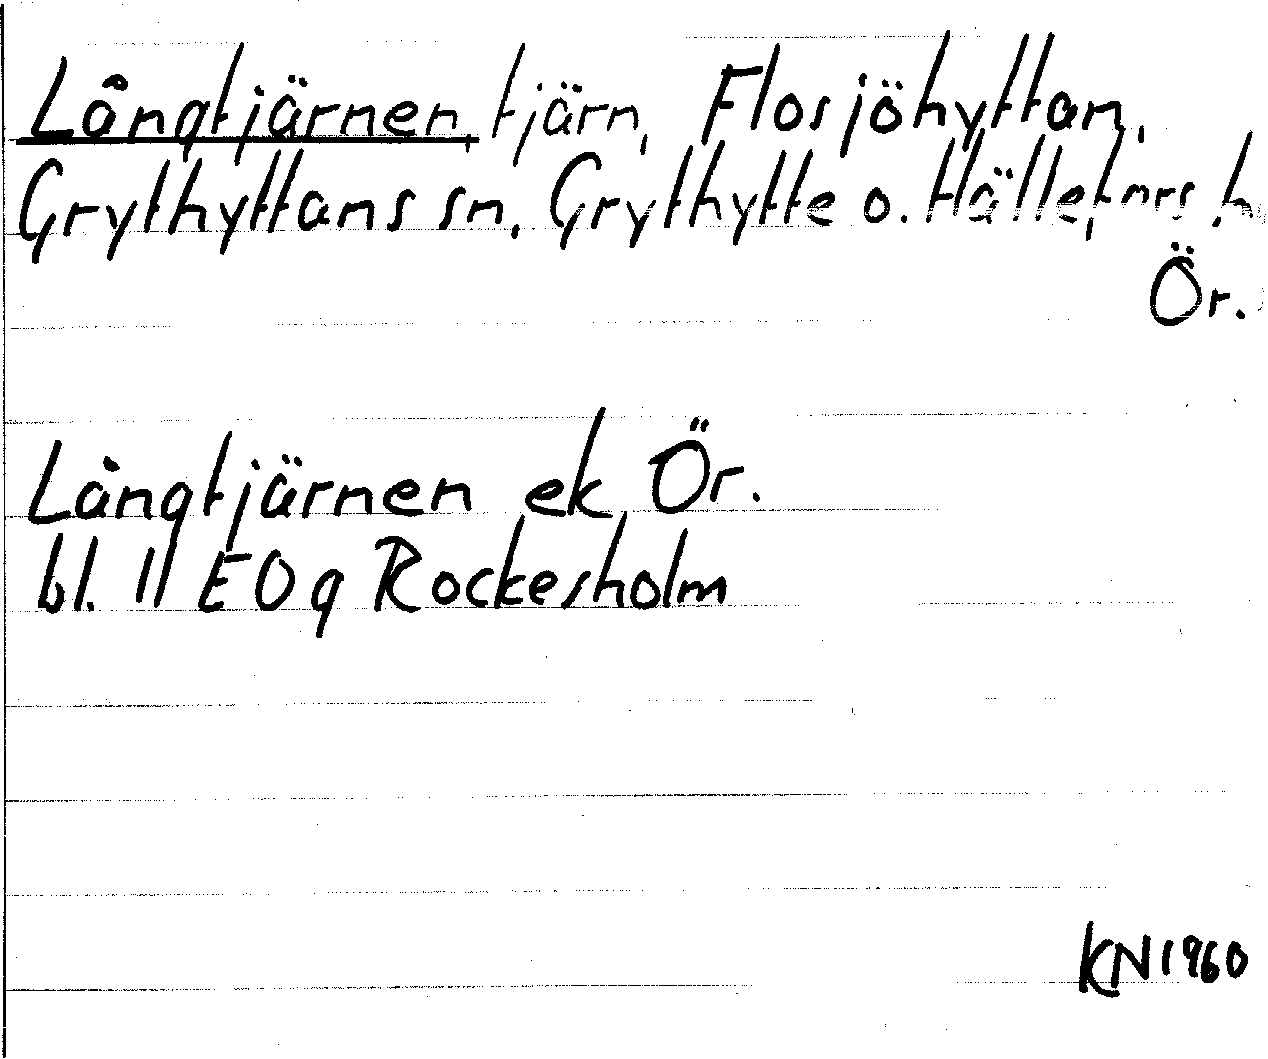 Långtjärnen, tjärn, Flosjöhyttan,
Grythyttans sn, Grythytte o. Hällefors h
Ör.
Långtjärnen ek Ör.
bl. 11 EO g Rockesholm
KN 1960